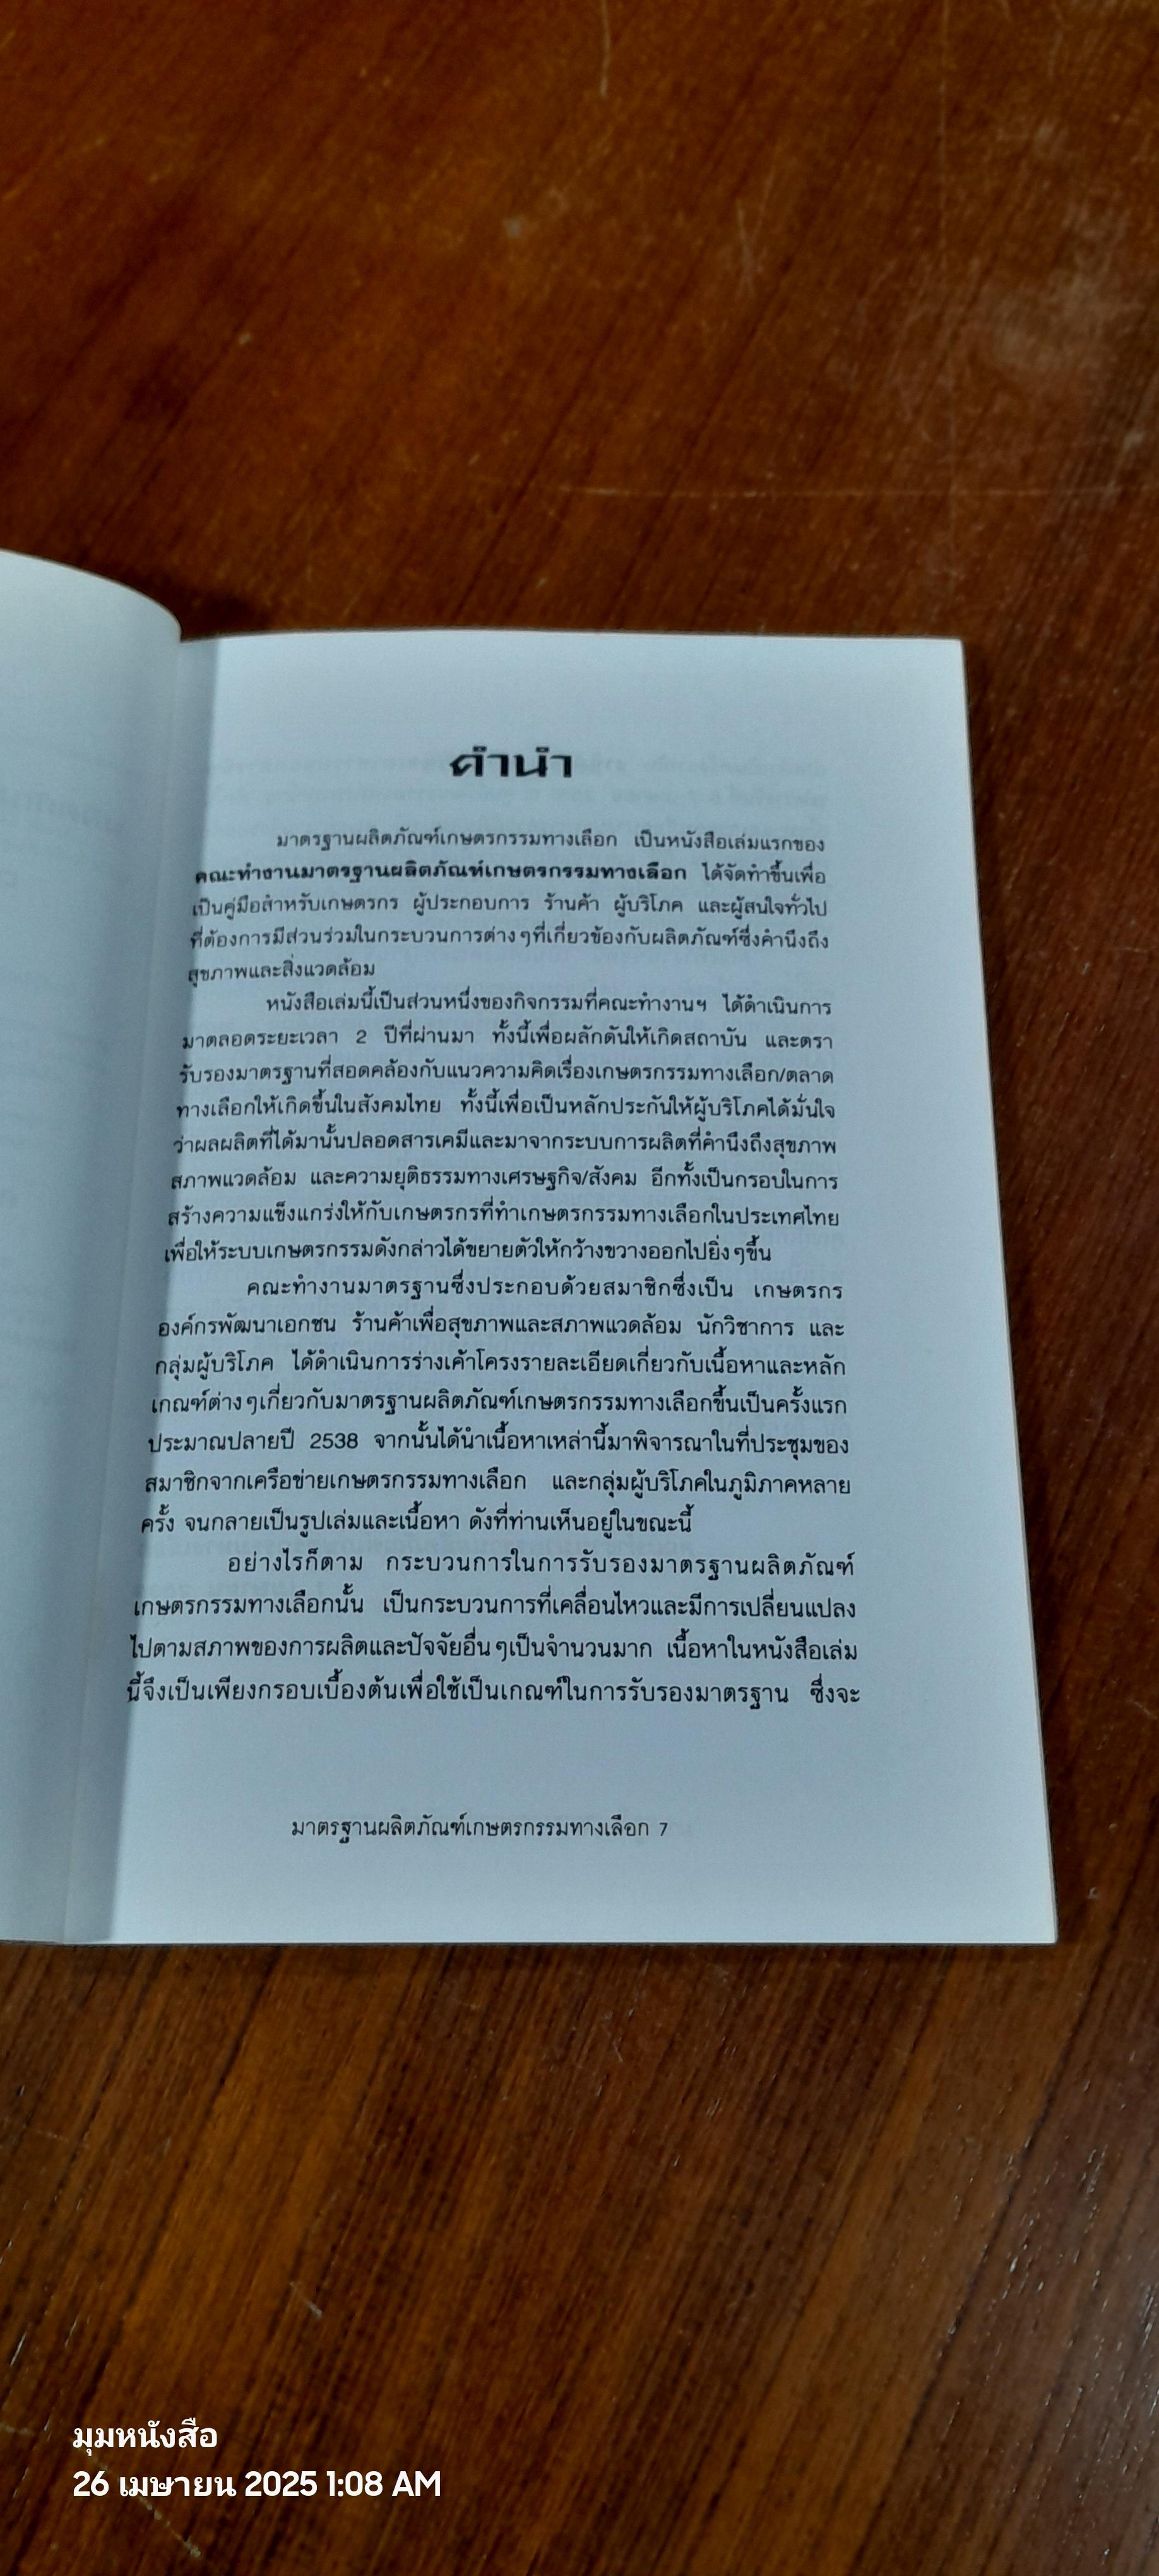 คำนำ
มาตรฐานผลิตภัณฑ์เกษตรกรรมทางเลือก เป็นหนังสือเล่มแรกของ
คณะทำงานมาตรฐานผลิตภัณฑ์เกษตรกรรมทางเลือก ได้จัดทำขึ้นเพื่อ
เป็นคู่มือสำหรับเกษตรกร ผู้ประกอบการ ร้านค้า ผู้บริโภค และผู้สนใจทั่วไป
ที่ต้องการมีส่วนร่วมในกระบวนการต่างๆที่เกี่ยวข้องกับผลิตภัณฑ์ซึ่งคำนึงถึง
สุขภาพและสิ่งแวดล้อม
หนังสือเล่มนี้เป็นส่วนหนึ่งของกิจกรรมที่คณะทำงานฯ ได้ดำเนินการ
มาตลอดระยะเวลา 2 ปีที่ผ่านมา ทั้งนี้เพื่อผลักดันให้เกิดสถาบัน และตรา
รับรองมาตรฐานที่สอดคล้องกับแนวความคิดเรื่องเกษตรกรรมทางเลือก/ตลาด
ทางเลือกให้เกิดขึ้นในสังคมไทย ทั้งนี้เพื่อเป็นหลักประกันให้ผู้บริโภคได้มั่นใจ
ว่าผลผลิตที่ได้มานั้นปลอดสารเคมีและมาจากระบบการผลิตที่คำนึงถึงสุขภาพ
สภาพแวดล้อม และความยุติธรรมทางเศรษฐกิจ/สังคม อีกทั้งเป็นกรอบในการ
สร้างความแข็งแกร่งให้กับเกษตรกรที่ทำเกษตรกรรมทางเลือกในประเทศไทย
เพื่อให้ระบบเกษตรกรรมดังกล่าวได้ขยายตัวให้กว้างขวางออกไปยิ่งๆขึ้น
คณะทำงานมาตรฐานซึ่งประกอบด้วยสมาชิกซึ่งเป็น เกษตรกร
องค์กรพัฒนาเอกชน ร้านค้าเพื่อสุขภาพและสภาพแวดล้อม นักวิชาการ และ
กลุ่มผู้บริโภค ได้ดำเนินการร่างเค้าโครงรายละเอียดเกี่ยวกับเนื้อหาและหลัก
เกณฑ์ต่างๆเกี่ยวกับมาตรฐานผลิตภัณฑ์เกษตรกรรมทางเลือกขึ้นเป็นครั้งแรก
ประมาณปลายปี 2538 จากนั้นได้นำเนื้อหาเหล่านี้มาพิจารณาในที่ประชุมของ
สมาชิกจากเครือข่ายเกษตรกรรมทางเลือก และกลุ่มผู้บริโภคในภูมิภาคหลาย
ครั้ง จนกลายเป็นรูปเล่มและเนื้อหา ดังที่ท่านเห็นอยู่ในขณะนี้
อย่างไรก็ตาม กระบวนการในการรับรองมาตรฐานผลิตภัณฑ์
เกษตรกรรมทางเลือกนั้น เป็นกระบวนการที่เคลื่อนไหวและมีการเปลี่ยนแปลง
ไปตามสภาพของการผลิตและปัจจัยอื่นๆเป็นจำนวนมาก เนื้อหาในหนังสือเล่ม
นี้จึงเป็นเพียงกรอบเบื้องต้นเพื่อใช้เป็นเกณฑ์ในการรับรองมาตรฐาน ซึ่งจะ
มาตรฐานผลิตภัณฑ์เกษตรกรรมทางเลือก 7
มุมหนังสือ
26 เมษายน 2025 1:08 AM